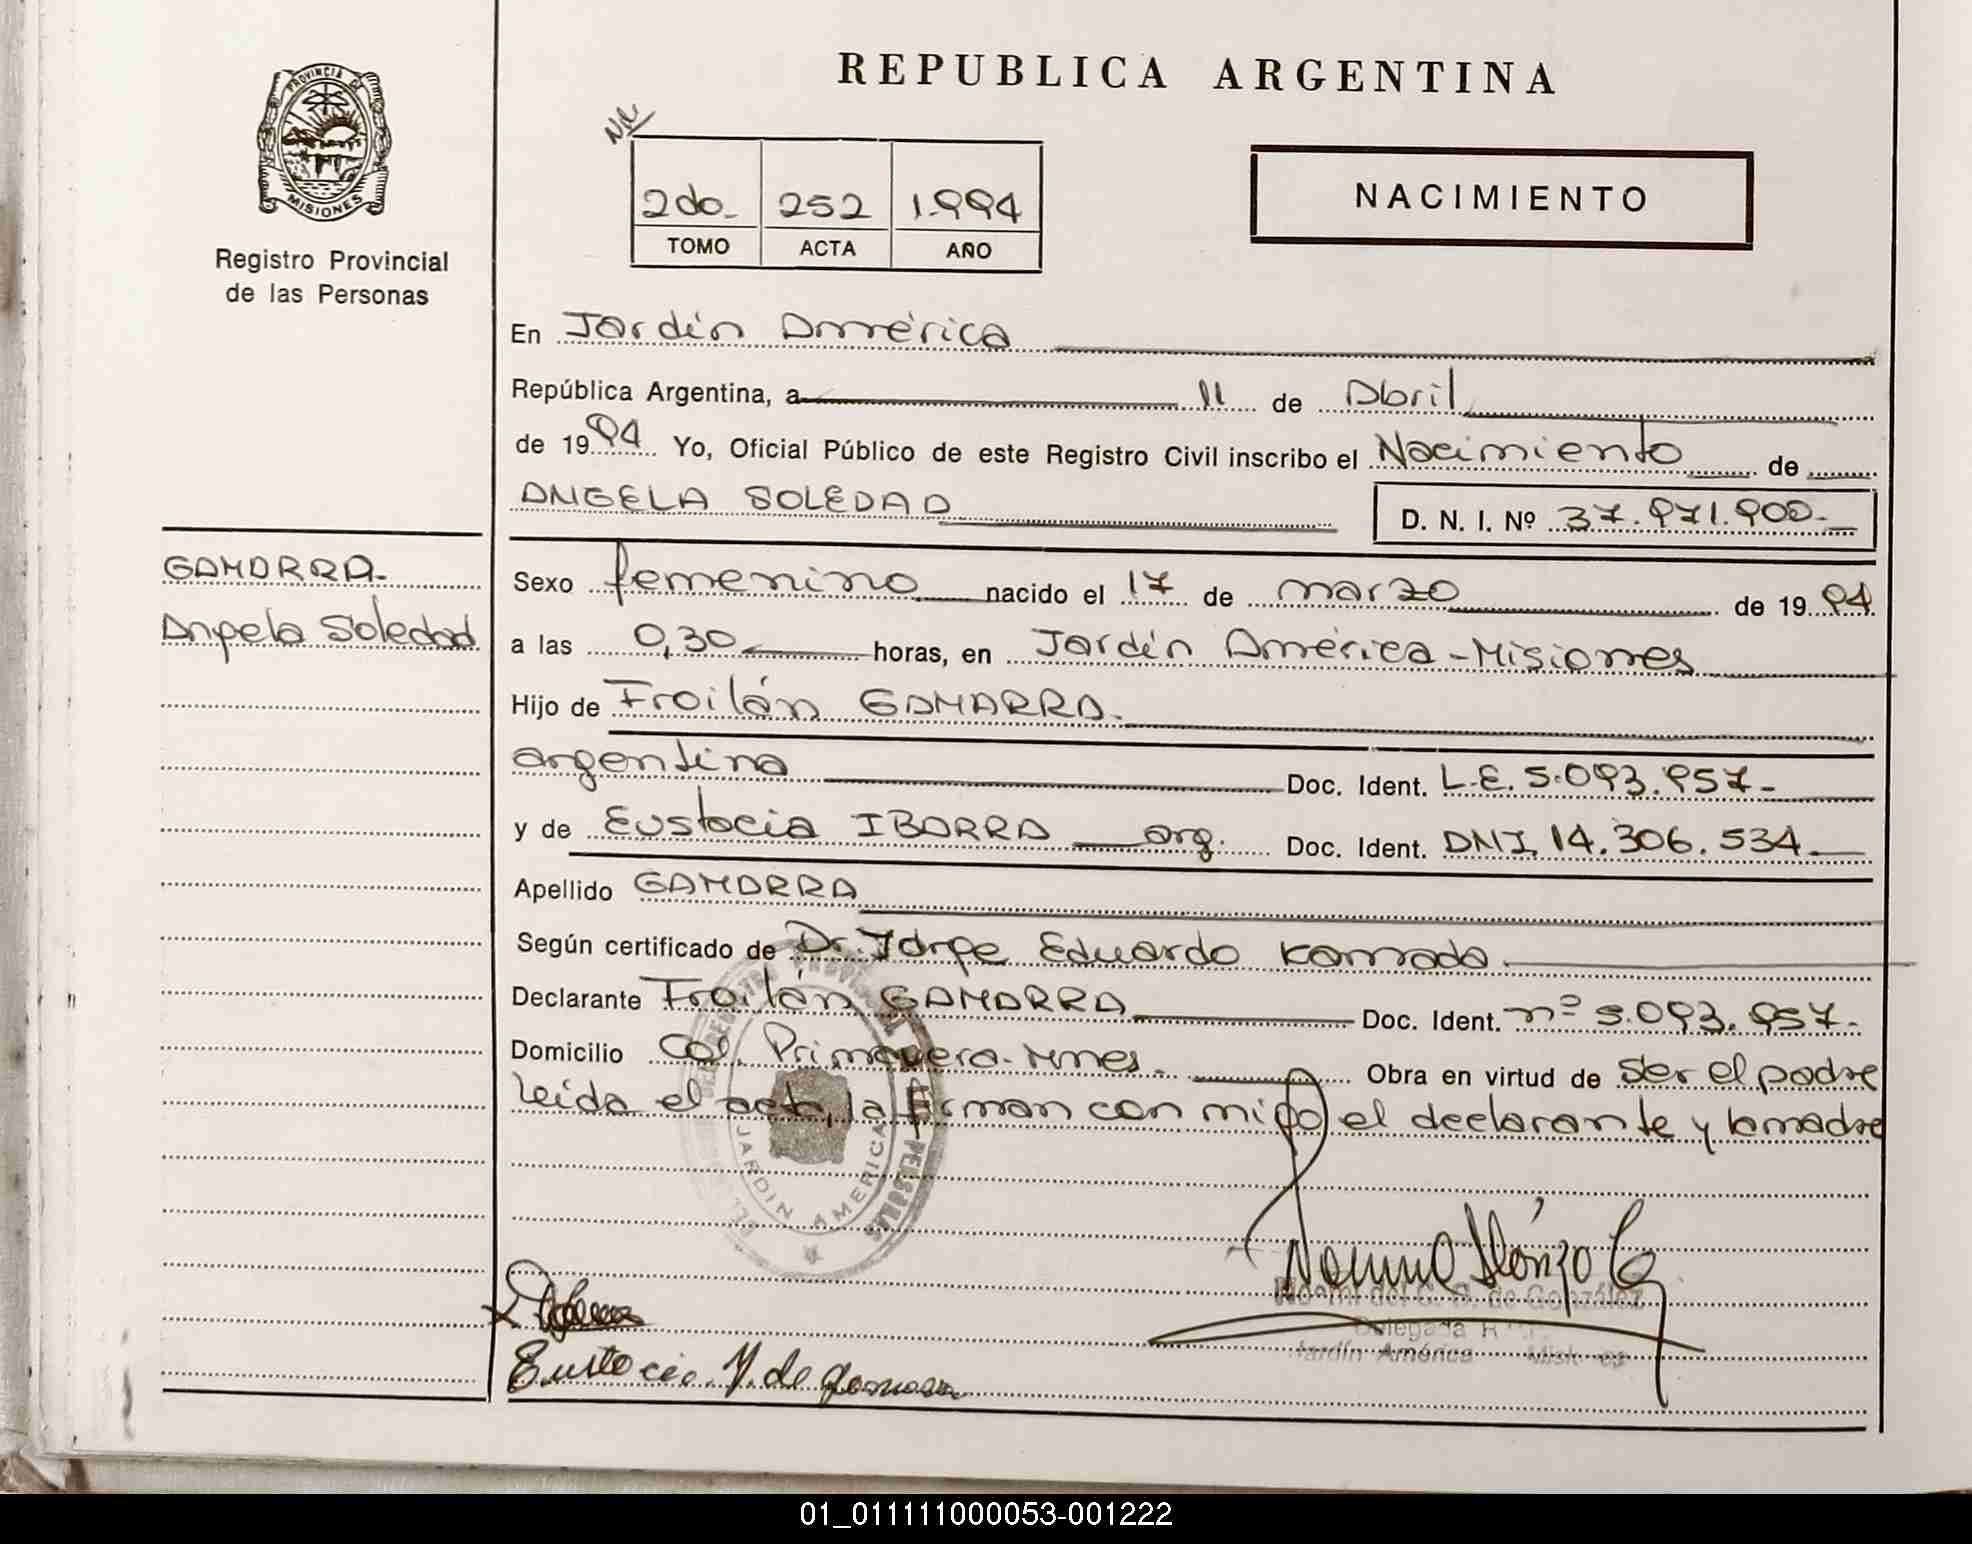 REPUBLICA ARGENTINA
PROVINCIA DE
MISIONES
Registro Provincial
de las Personas
2do. 252 1.994
TOMO ACTA AÑO
NACIMIENTO
En Jardín América
República Argentina, a 11 de Abril
de 1994 Yo, Oficial Público de este Registro Civil inscribo el Nacimiento de
ANGELA SOLEDAD D. N. I. Nº 37.971.900.
GAMARRA.
Angela Soledad
Sexo femenino nacido el 17 de marzo de 1994
a las 0,30 horas, en Jardín América - Misiones
Hijo de Froilán GAMARRA.
argentina Doc. Ident. L.E. 5.093.957-
y de Eustocia IBARRA arg. Doc. Ident. DNI. 14.306.534.
Apellido GAMARRA
Según certificado de Dr. Jorge Eduardo Kamada.
Declarante Froilán GAMARRA Doc. Ident. nº 5.093.957.
Domicilio Col. Primavera-Mnes. Obra en virtud de ser el padre
leida el acta, la firman con migo el declarante y la madre
JARDIN AMERICA
Noemí del C. de González
Delegada
Jardín América Misiones
Eustocia Y. de gamarra
01_011111000053-001222